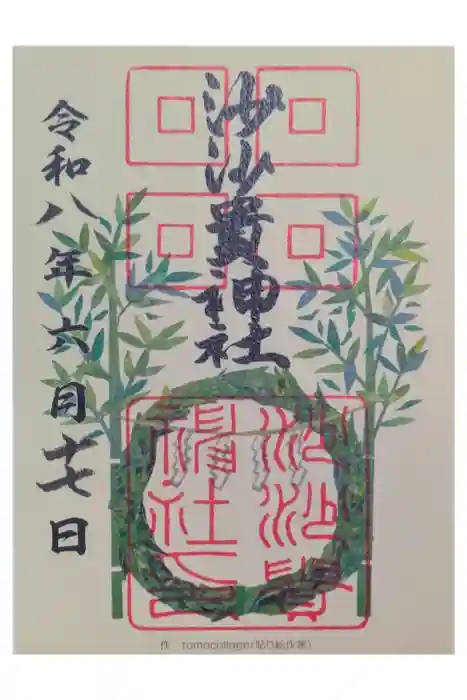 沙沙貴神社
令和八年六月十七日
沙沙貴
神社之印
作　tomocollage(貼り絵作家)